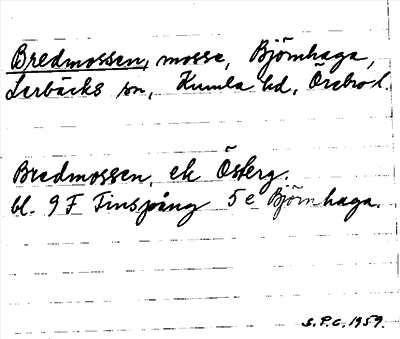 Bredmossen, mosse, Björnhaga,
Lerbäcks sn, Kumla hd, Örebro l.
Bredmossen, ek Österg.
bl. 9 F Finspång 5 e Björnhaga.
S.P.C. 1959.